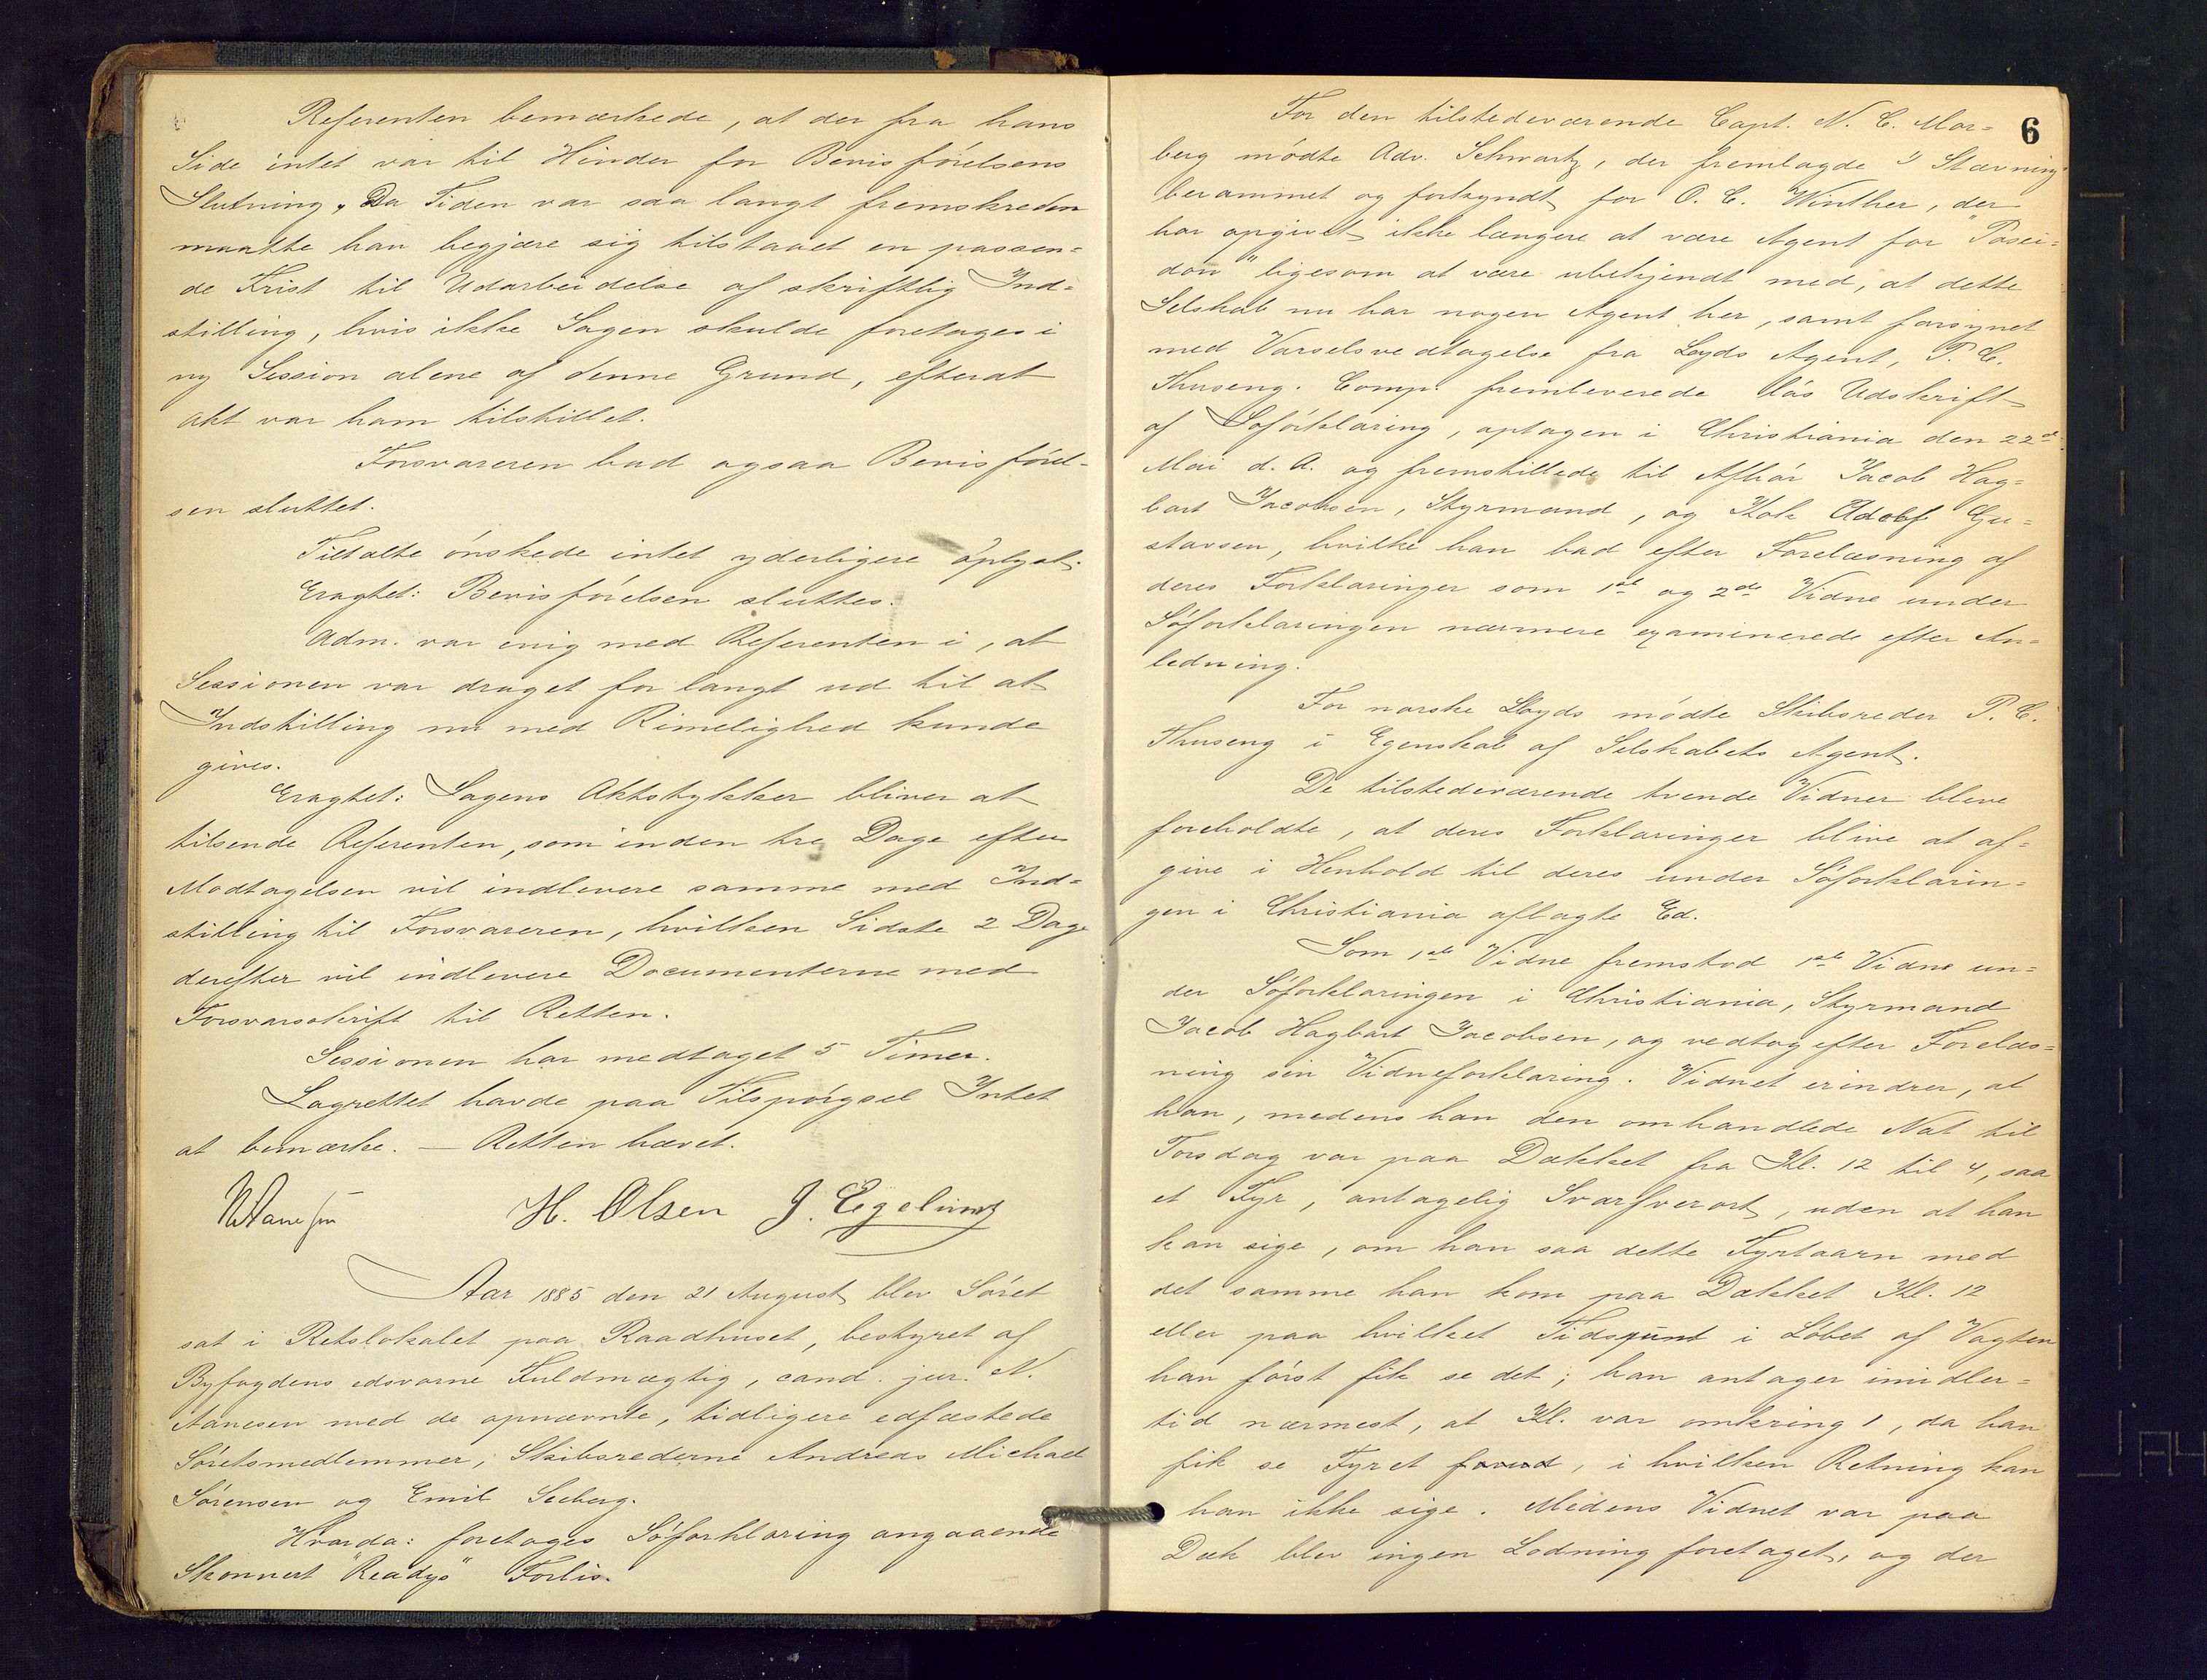 Referenten bemærkede, at der fra hans
Side intet var til Hinder for Bevisförelsens
Slutning. Da Tiden var saa langt fremskreden
maatte han begjære sig tilstaaet en passen-
de Frist til Udarbeidelse af skriftlig Ind-
stilling, hvis ikke Sagen skulde foretages i
ny Session alene af denne Grund, efterat
Akt var ham tilstillet.
Forsvareren bad ogsaa Bevisförel-
sen sluttet.
Tiltalte önskede intet yderligere oplyst.
Eragtet: Bevisförelsen sluttes.
Adm. var enig med Referenten i, at
Sessionen var draget for langt ud til at
Indstilling nu med Rimelighed kunde
gives.
Eragtet: Sagens Aktstykker bliver at
tilsende Referenten, som inden tre Dage efter
Modtagelsen vil indlevere samme med Ind-
stilling til Forsvareren, hvilken Sidste 2 Dage
derefter vil indlevere Documenterne med
Forsvarsskrift til Retten.
Sessionen har medtaget 5 Timer.
Lagrettet havde paa Tilspörgsel Intet
at bemærke. — Retten hævet.
H. Olsen J. Egelund
Aar 1885 den 21 August blev Söret
sat i Retslokalet paa Raadhuset, bestyret af
Byfogdens edsvorne Fuldmægtig, cand. jur. N.
Aanesen med de opnævnte, tidligere edfæstede
Söretsmedlemmer, Skibsrederne Andreas Michael
Sörensen og Emil Seeberg.
Hvorda: foretoges Söforklaring angaaende
Skonnert "Readys" Forlis.
6
For den tilstedeværende Capt. N. C. Mor-
berg mödte Adv. Schwartz, der fremlagde Stævning
berammet og forkyndt for O. C. Winther, der
har opgivet ikke længere at være Agent for "Posei-
don" ligesom at være ubekjendt med, at dette
Selskab nu har nogen Agent her, samt forsynet
med Varselsvedtagelse fra Loyds Agent, P. C.
Thuseng. Comp. fremleverede lös Udskrift
af Söforklaring, optagen i Christiania den 22de
Mai d. A. og fremstillede til Afhör Jacob Hag-
bart Jacobsen, Styrmand, og Kok Adolf Gu-
stavsen, hvilke han bad efter Forelæsning af
deres Forklaringer som 1ste og 2det Vidne under
Söforklaringen nærmere examinerede efter An-
ledning.
For norske Lloyds mödte Skibsreder P. C.
Thuseng i Egenskab af Selskabets Agent.
De tilstedeværende tvende Vidner bleve
foreholdte, at deres Forklaringer blive at af-
give i Henhold til deres under Söforklarin-
gen i Christiania aflagte Ed.
Som 1ste Vidne fremstod 1ste Vidne un-
der Söforklaringen i Christiania, Styrmand
Jacob Hagbart Jacobsen, og vedtog efter Forelæs-
ning sin Vidneforklaring. Vidnet erindrer, at
han, medens han den omhandlede Nat til
Torsdag var paa Dækket fra Kl. 12 til 4, saa
et Fyr, antagelig Svarfverort, uden at han
kan sige, om han saa dette Fyrtaarn med
det samme han kom paa Dækket Kl. 12
eller paa hvilket Tidspunt i Löbet af Vagten
han först fik se det; han antager imidler-
tid nærmest, at Kl. var omkring 1, da han
fik se Fyret forud, i hvilken Retning kan
han ikke sige. Medens Vidnet var paa
Dæk blev ingen Lodning foretaget, og der